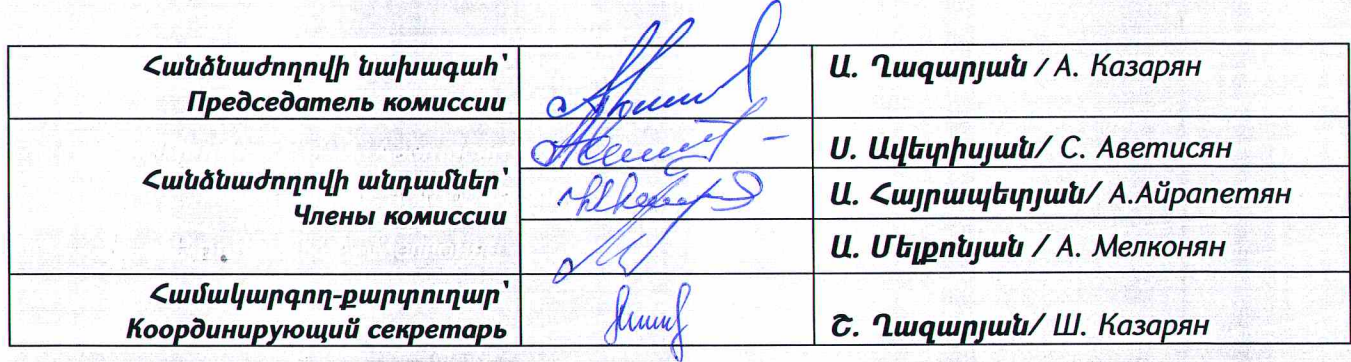 Հանձնաժողովի նախագահ՝
Председатель комиссии
Ա. Ղազարյան / А. Казарян
Հանձնաժողովի անդամներ՝
Члены комиссии
Ս. Ավետիսյան/ С. Аветисян
Ա. Հայրապետյան/ А.Айрапетян
Ա. Մելքոնյան / А. Мелконян
Համակարգող-քարտուղար՝
Координирующий секретарь
Շ. Ղազարյան/ Ш. Казарян